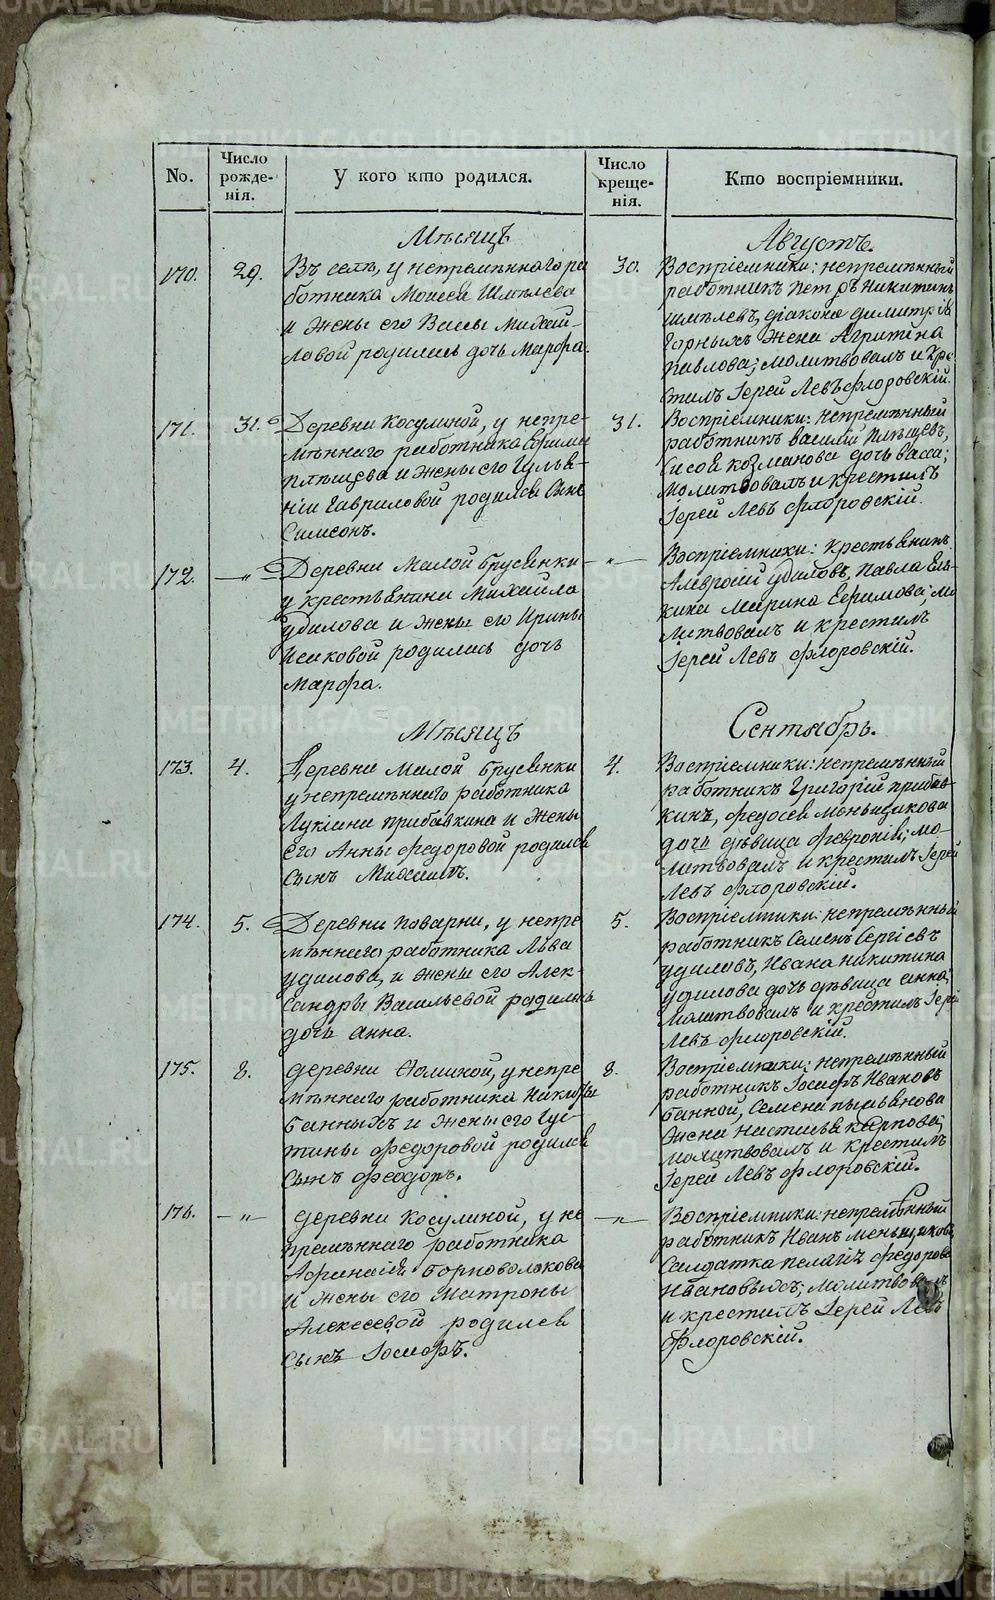 No.
Число
рожде-
нія.
У кого кто родился.
Число
креще-
нія.
Кто воспріемники.
Мѣсяцъ
Августъ.
170.
29.
Въ селѣ, у непремѣннаго ра
ботника Моисея Шмелева
и жены его Вассы Михай-
ловой родилась дочь Марфа.
30.
Воспріемники: непремѣнный
работникъ Петръ Никитинъ
Шмѣлевъ, діакона Димитрія
Горныхъ жена Агрипина
Павлова; молитвовалъ и кре
стилъ Іерей Левъ Флоровскій.
171.
31.
Деревни Косулиной, у непре-
мѣннаго работника Ефима
Плѣщева и жены его Гулье-
ніи Гавриловой родился сынъ
Симеонъ.
31.
Воспріемники: непремѣнный
работникъ Василій Плѣщевъ,
Сисоя Козманова дочь Васса;
молитвовалъ и крестилъ
Іерей Левъ Флоровскій.
172.
— „ —
Деревни Малой Брусянки
у крестьянина Михайла
Удилова и жены его Ирины
Исаковой родилась дочь
Марфа.
— „ —
Воспріемники: крестьянинъ
Амвросій Удиловъ, Павла
Марина Ефимова; мо
литвовалъ и крестилъ
Іерей Левъ Флоровскій.
Мѣсяцъ
Сентябрь.
173.
4.
Деревни Малой Брусянки
у непремѣннаго работника
Лукіана Прибавкина и жены
его Анны Федоровой родился
сынъ Михаилъ.
4.
Воспріемники: непремѣнный
работникъ Григорій Прибав-
кинъ, Федосея Меньщикова
дочь дѣвица Февронія; мо-
литвовалъ и крестилъ Іерей
Левъ Флоровскій.
174.
5.
Деревни Поварни, у непре
мѣннаго работника Льва
Удилова, и жены его Алек-
сандры Васильевой родилась
дочь Анна.
5.
Воспріемники: непремѣнный
работникъ Семенъ Сергіевъ
Удиловъ, Ивана Никитина
Удилова дочь дѣвица Анна;
молитвовалъ и крестилъ Іерей
Левъ Флоровскій.
175.
8.
Деревни Ѳоминой, у непре
мѣннаго работника Никифора
Банныхъ и жены его Гус-
тины Федоровой родился
сынъ Феодоръ.
8.
Воспріемники: непремѣнный
работникъ Іосифъ Ивановъ
Банной, Семена
жена Настасья Карпова;
молитвовалъ и крестилъ
Іерей Левъ Флоровскій.
176.
— „ —
Деревни Косулиной, у не
премѣннаго работника
Афанасія Горноволокова
и жены его Матроны
Алексеевой родился
сынъ Іосифъ.
— „ —
Воспріемники: непремѣнный
работникъ Иванъ Меньщиковъ,
Салдатка Пелагія Федорова
Ивановыхъ; молитвовалъ
и крестилъ Іерей Левъ
Флоровскій.